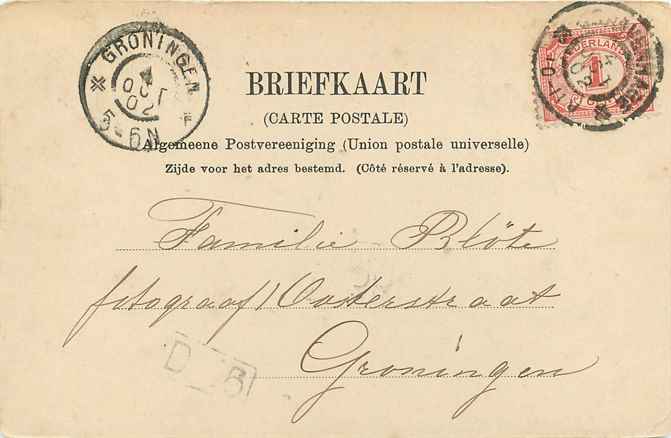 GRONINGEN
4
OCT
02
5-6N
NEDERLAND
1
BRIEFKAART
(CARTE POSTALE)
Algemeene Postvereeniging (Union postale universelle)
Zijde voor het adres bestemd. (Côté réservé à l'adresse).
Familie Blöte
fotograaf / Oosterstraat
Groningen
D B